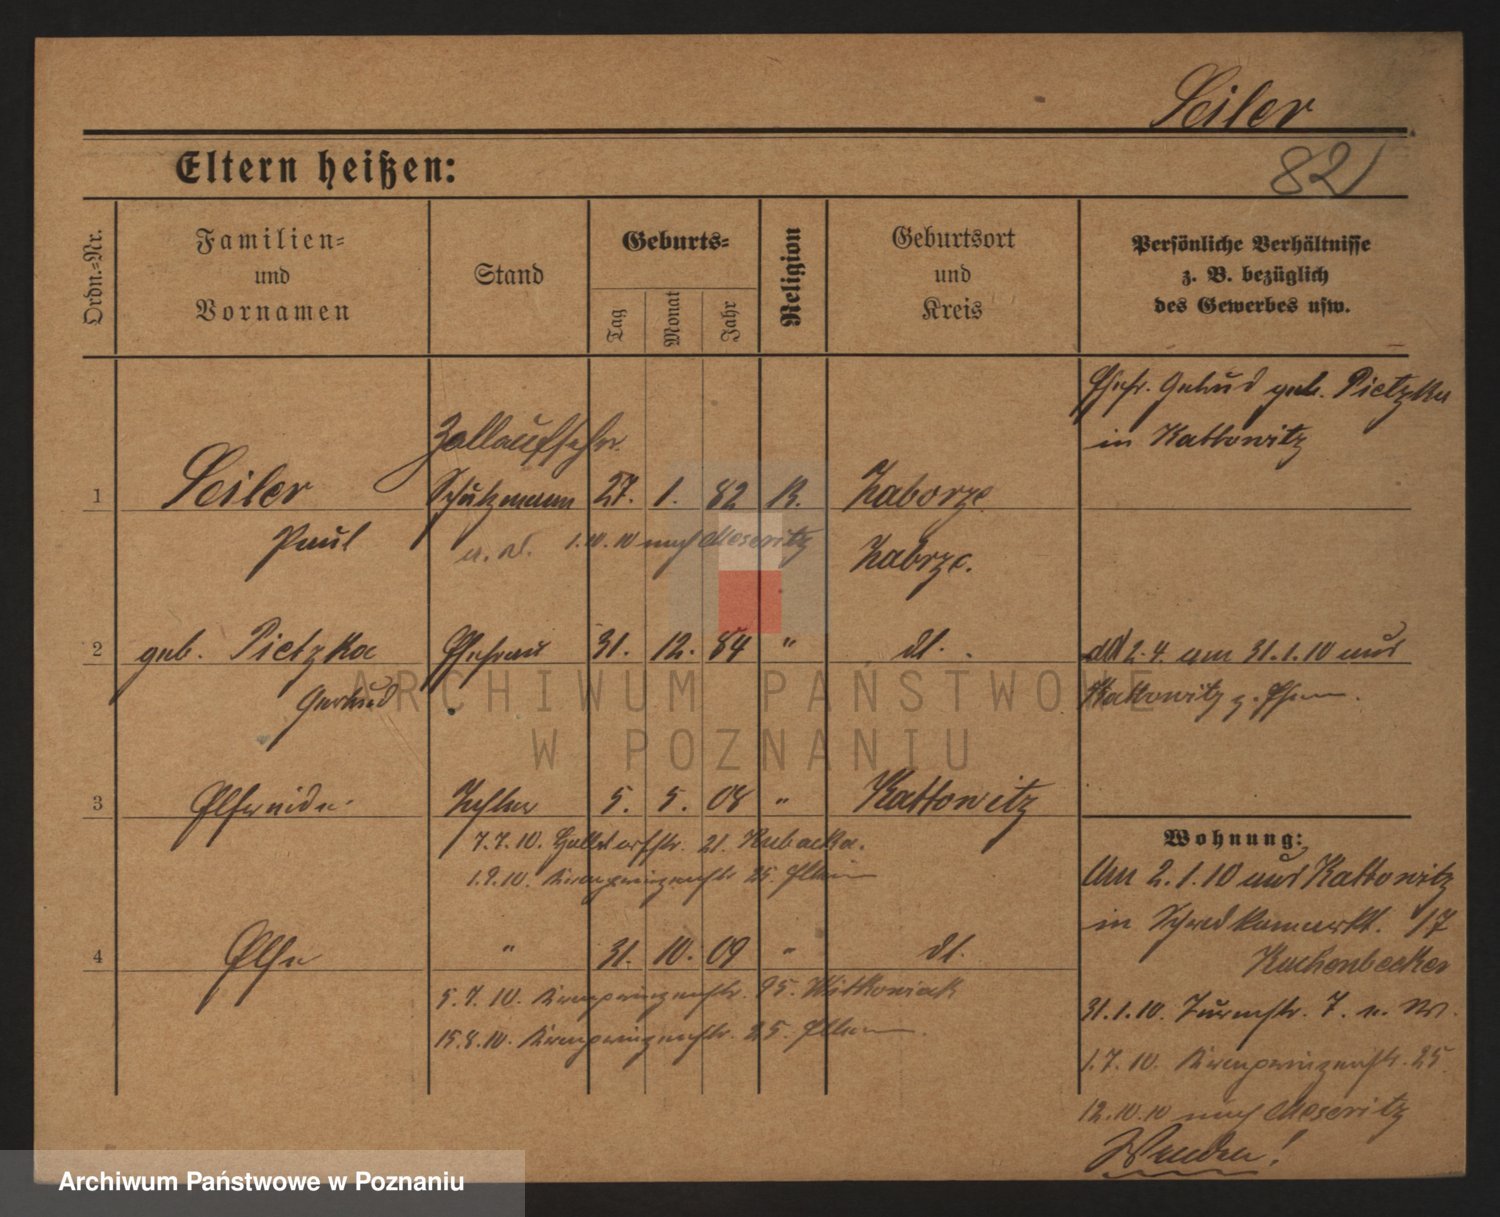 Seiler
82
Eltern heißen:
Ordn.-Nr.
Familien-
und
Vornamen
Stand
Geburts-
Tag
Monat
Jahr
Religion
Geburtsort
und
Kreis
Persönliche Verhältnisse
z. B. bezüglich
des Gewerbes usw.
Ehefr. Gertrud geb. Pietzka
in Kattowitz
Zollaufseher
1 Seiler Schutzmann 27. 1. 82 K. Zaborze
Paul 1.10.10 nach Meseritz Zabrze.
2 geb. Pietzka Ehefrau 31. 12. 84 " dt.
Gertrud
2.4. am 31.1.10 aus
Kattowitz z.
3 Elfriede Tochter 5. 5. 08 " Kattowitz
7.7.10. str. 21. Kubacka.
1.9.10. Kronprinzenstr. 25. Eltern
Wohnung:
Am 2.1.10 aus Kattowitz
in 17
Kuchenbecker
4 Else " 31. 10. 09 " dt.
5.7.10. Kronprinzenstr. 95. Witkowiak
15.8.10. Kronprinzenstr. 25. Eltern
31.1.10. Turmstr. 7. n. W.
1.7.10. Kronprinzenstr. 25
12.10.10 nach Meseritz
Wenden!
ARCHIWUM PAŃSTWOWE
W POZNANIU
Archiwum Państwowe w Poznaniu